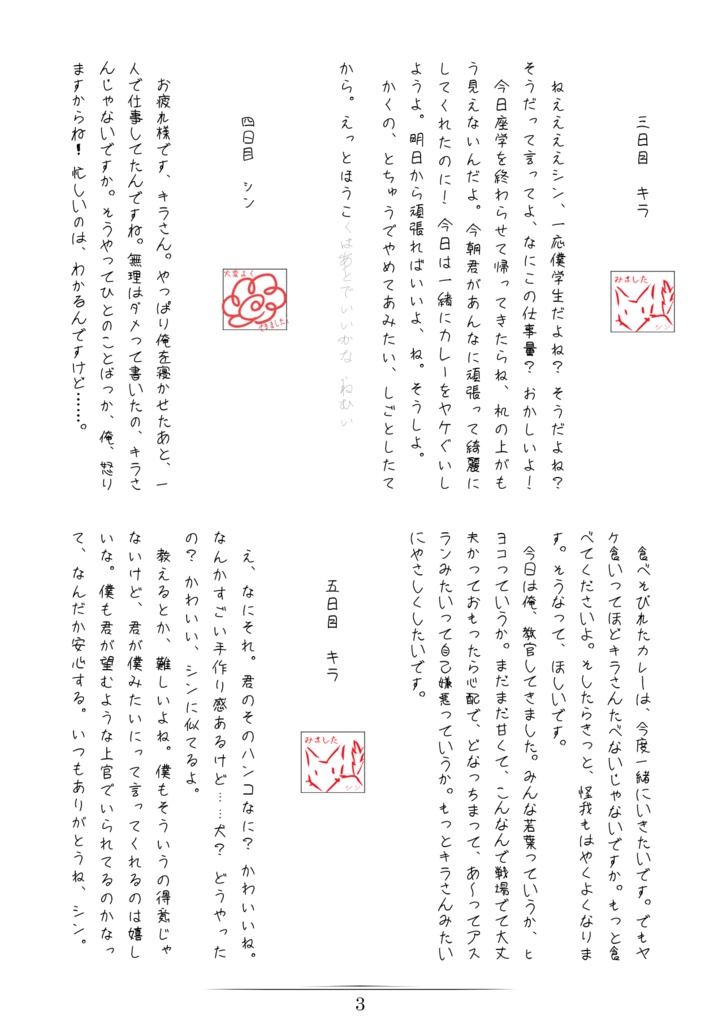 三日目　キラ
みました
シン
ねええええシン、一応僕学生だよね？　そうだよね？
そうだって言ってよ、なにこの仕事量？　おかしいよ！
今日座学を終わらせて帰ってきたらね、机の上がも
う見えないんだよ。今朝君があんなに頑張って綺麗に
してくれたのに！　今日は一緒にカレーをヤケぐいし
ようよ。明日から頑張ればいいよ、ね。そうしよ。
かくの、とちゅうでやめてあみたい、しごとしたて
から。えっとほうこくはあとでいいかな　らねむい
四日目　シン
大変よく
できました
お疲れ様です、キラさん。やっぱり俺を寝かせたあと、一
人で仕事してたんですね。無理はダメって書いたの、キラさ
んじゃないですか。そうやってひとのことばっか、俺、怒り
ますからね！　忙しいのは、わかるんですけど……。
食べそびれたカレーは、今度一緒にいきたいです。でもヤ
ケ食いってほどキラさんたべないじゃないですか。もっと食
べてくださいよ。そしたらきっと、怪我もはやくよくなりま
す。そうなって、ほしいです。
今日は俺、教官してきました。みんな若葉っていうか、ヒ
ヨコっていうか。まだまだ甘くて、こんなんで戦場でて大丈
夫かっておもったら心配で、どなっちまって、あ〜ってアス
ランみたいって自己嫌悪っていうか。もっとキラさんみたい
にやさしくしたいです。
五日目　キラ
みました
シン
え、なにそれ。君のそのハンコなに？　かわいいね。
なんかすごい手作り感あるけど……犬？　どうやった
の？　かわいい、シンに似てるよ。
教えるとか、難しいよね。僕もそういうの得意じゃ
ないけど、君が僕みたいにって言ってくれるのは嬉し
いな。僕も君が望むような上官でいられてるのかなっ
て、なんだか安心する。いつもありがとうね、シン。
3